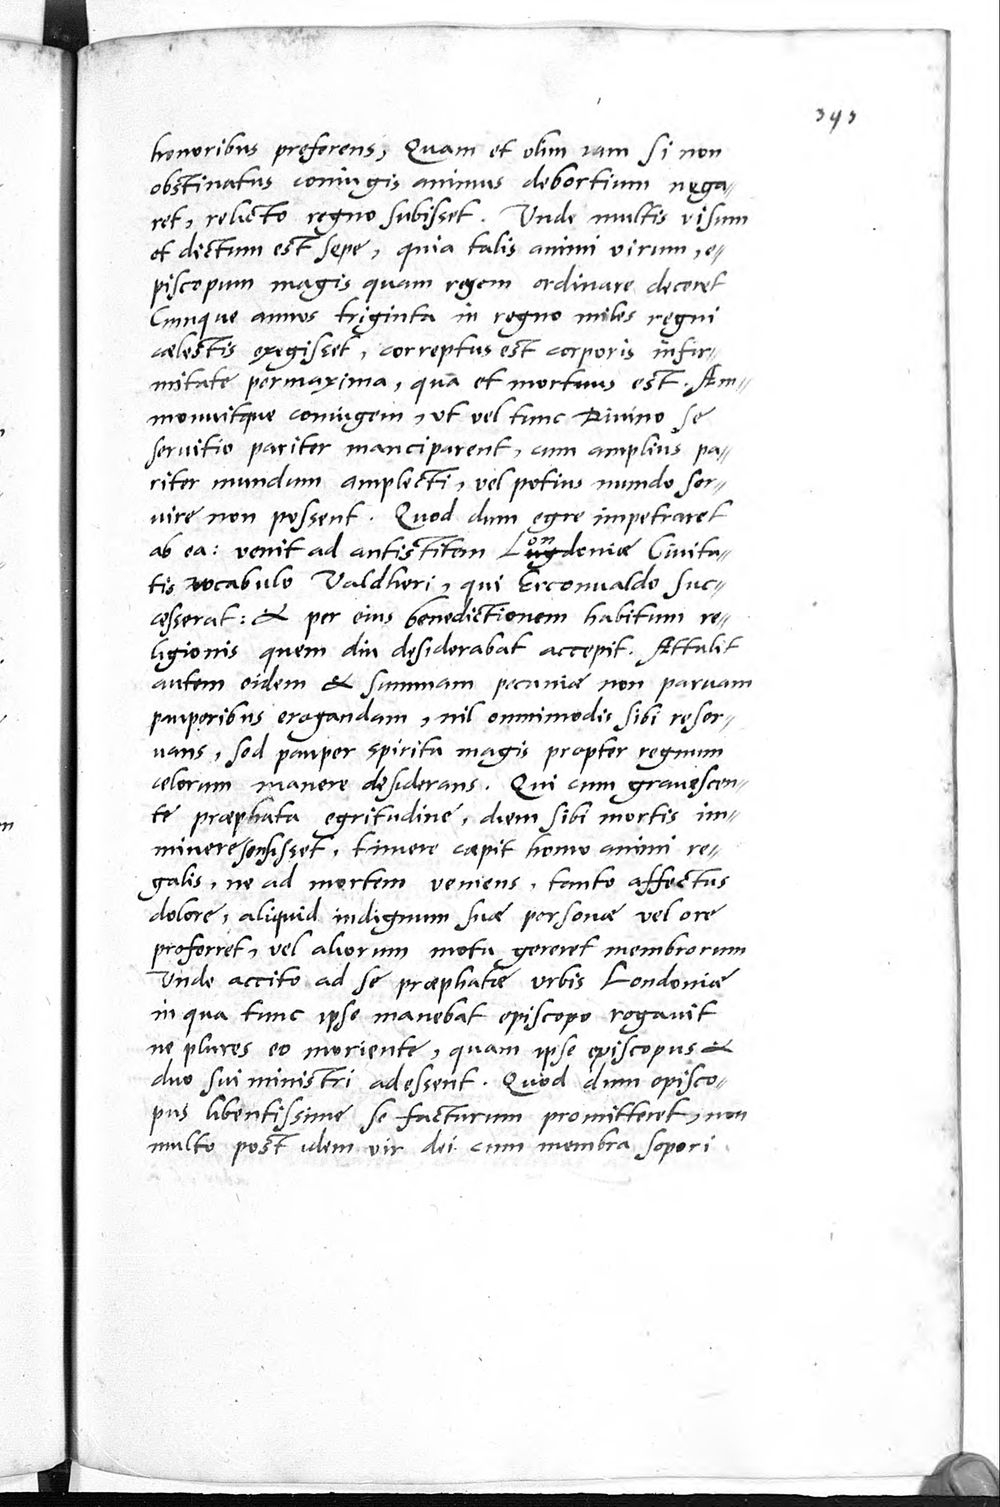 393
honoribus preferens, Quam et olim iam si non
obstinatus coniugis animus debortium nega//
ret, relicto regno subisset. Unde multis visum
et dictum est sepe, quia talis animi virum, e//
piscopum magis quam regem ordinare deceret
Cunque annos triginta in regno miles regni
cælestis exegisset, correptus est corporis infir//
mitate permaxima, qua et mortuus est. Am//
monuitque coniugem, ut vel tunc Divino se
servitio pariter manciparent, cum amplius pa//
riter mundum amplecti, vel potius mundo ser//
vire non possent. Quod dum egre impetraret
ab ea: venit ad antistitem Londoniæ Civita//
tis vocabulo Valdheri, qui Erconualdo suc//
cesserat: & per eius benedictionem habitum re//
ligionis quem diu desiderabat accepit. Attulit
autem eidem & summam pecuniæ non parvam
pauperibus erogandam, nil omnimodis sibi reser//
vans, sed pauper spiritu magis propter regnum
celorum manere desiderans. Qui cum gravescen//
te præphata egritudine, diem sibi mortis im//
minere sensisset, timere cæpit homo animi re//
galis, ne ad mortem veniens, tanto affectus
dolore, aliquid indignum suæ personæ vel ore
proferret, vel aliorum motu gereret membrorum
Unde accito ad se præphatæ urbis Londoniæ
in qua tunc ipse manebat episcopo rogavit
ne plures eo moriente, quam ipse episcopus &
duo sui ministri adessent. Quod dum episco//
pus libentissime se facturum promitteret, non
multo post idem vir dei cum membra sopori